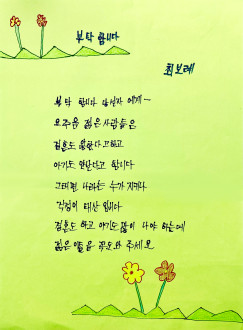 부탁 합니다
최보례
부탁 합니다 당신자 에게~
요주음 젊은사람들은
결혼도 않한다고하고
아기도 안난다고 합니다
그러면 나라는 누가 지키나
걱정이 태산 입니다
결혼도 하고 아기도 많이 나야 하는데
젊은이들을 도와 주세요